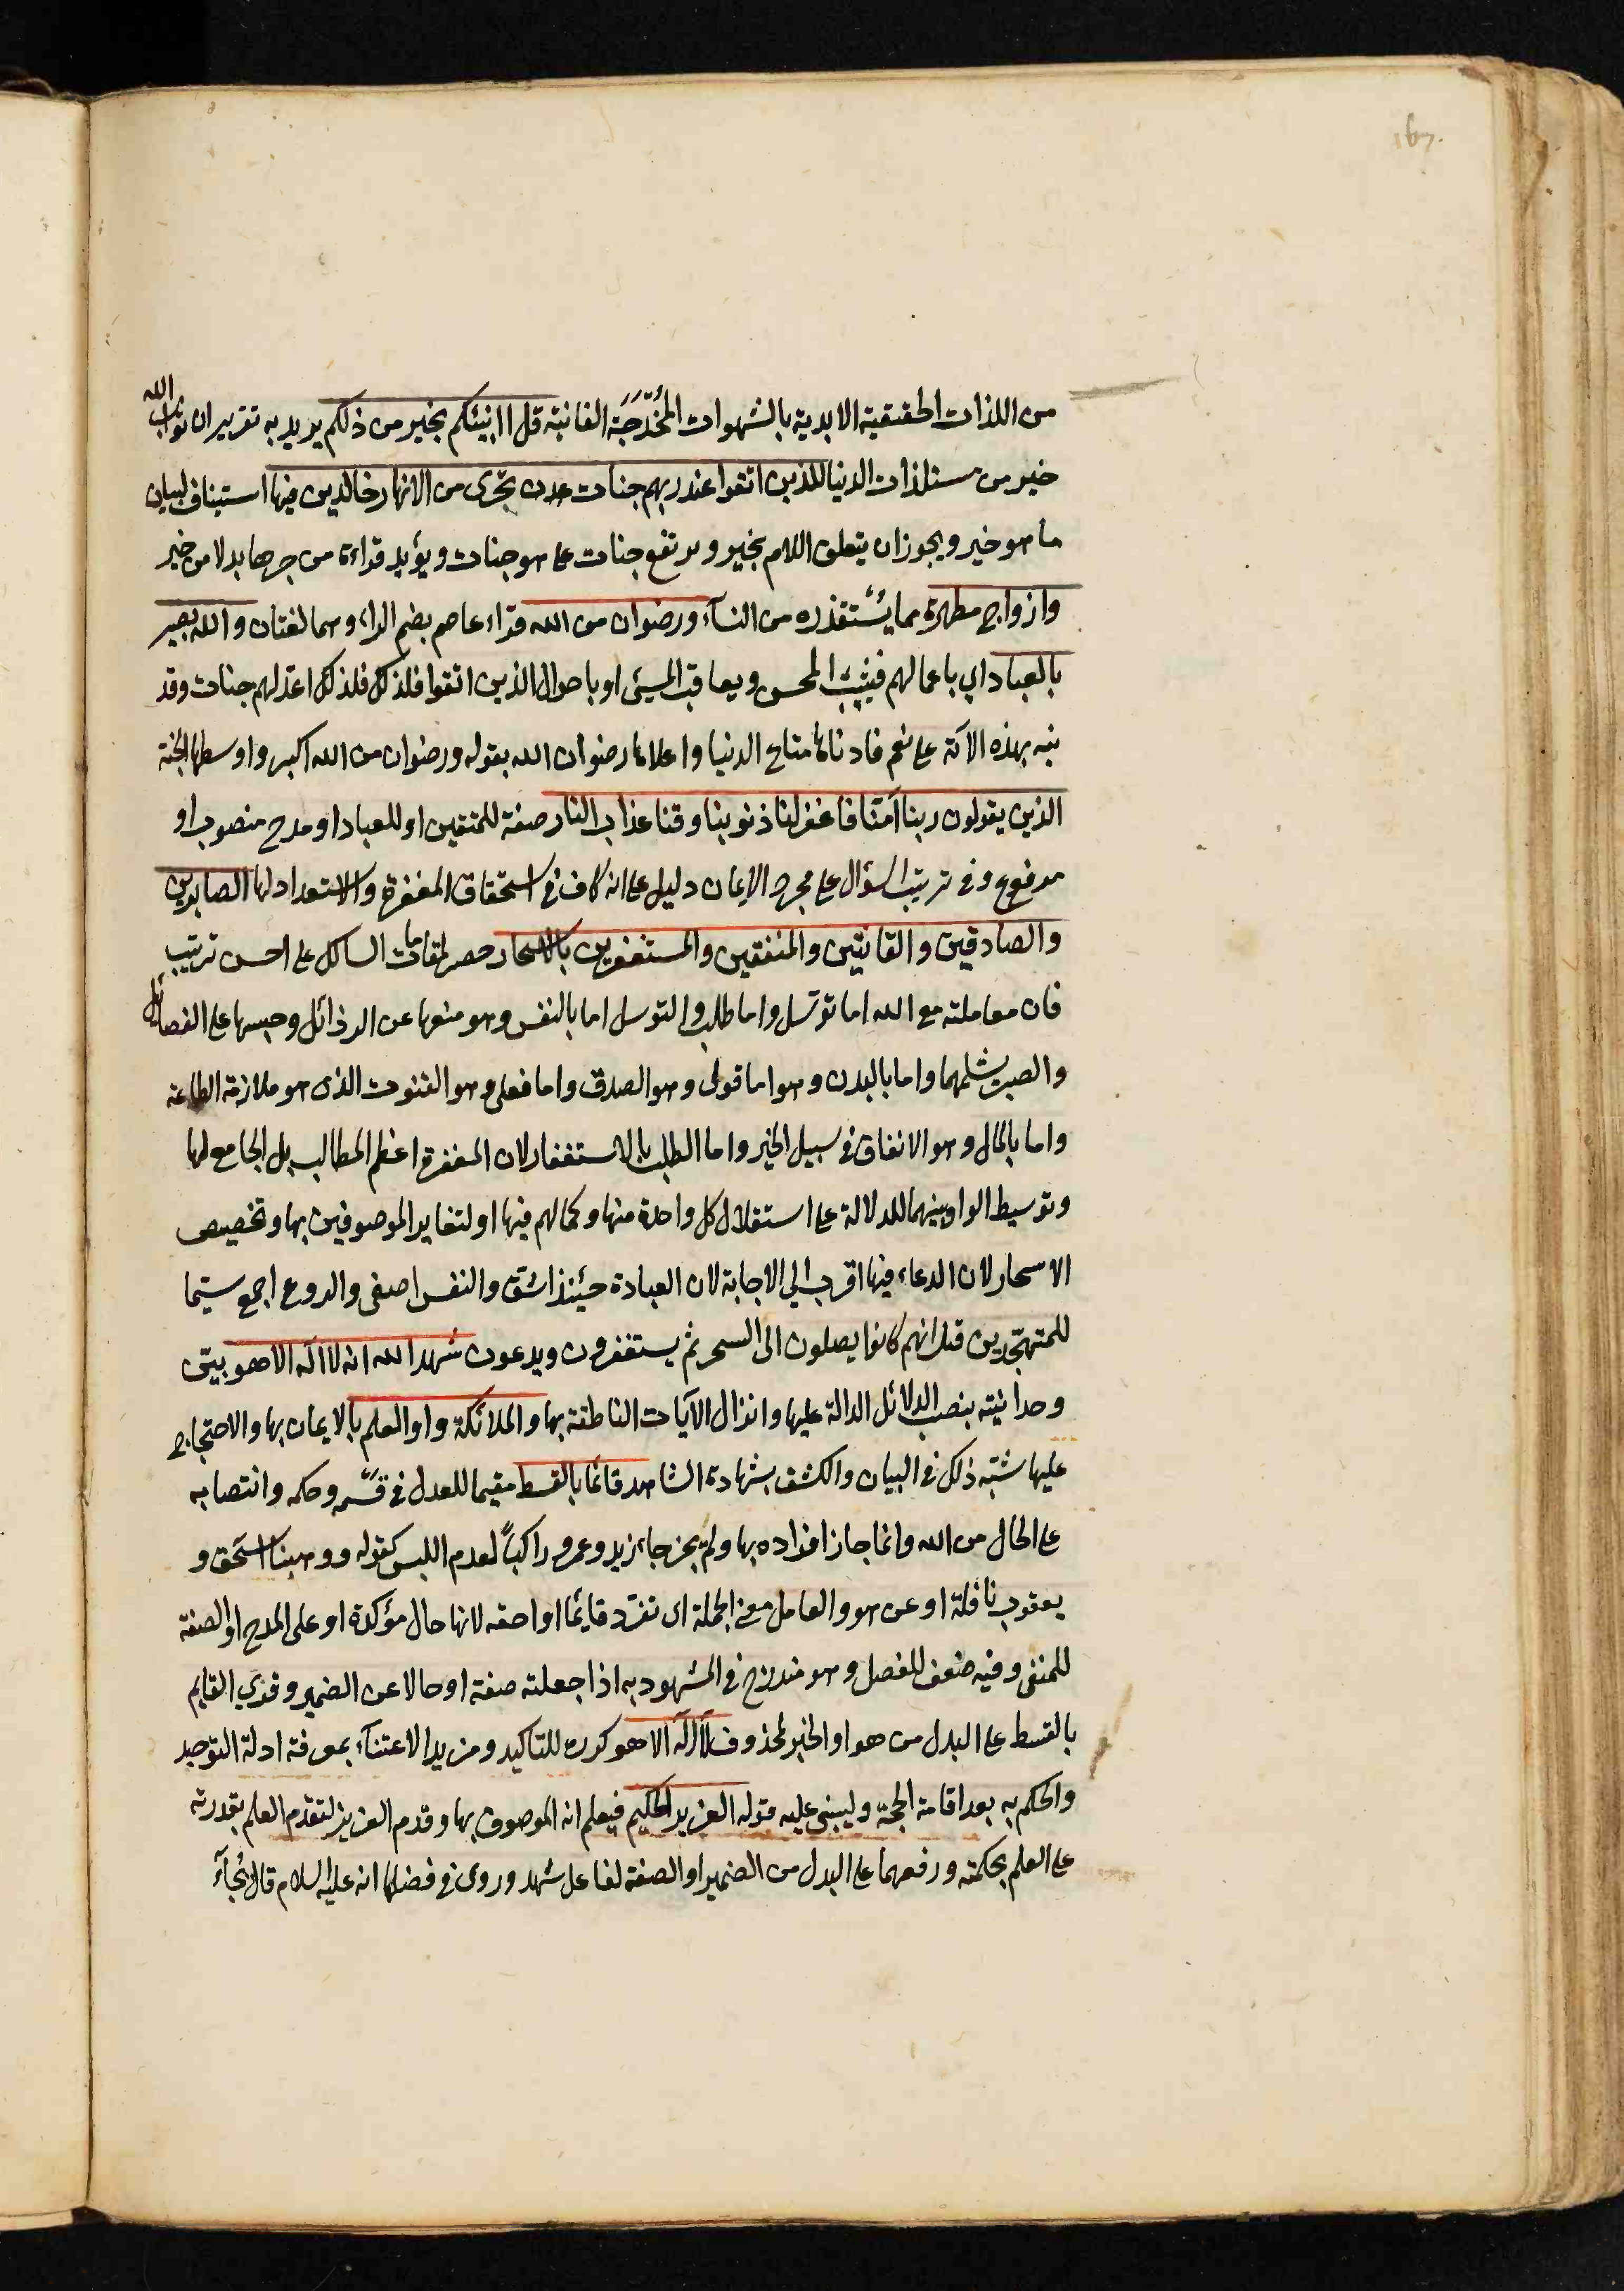 167.
من اللذات الحقيقية الابدية بالشهوات المخدّجَة الفانية قل اانبئكم بخير من ذلكم يريد به تقرير ان ثواب الله
خير من مستلذات الدنيا للذين اتقوا عند ربهم جنات عدن تجرى من الانهار خالدين فيها استيناف لبيان
ما هو خير ويجوز ان يتعلق اللام بخير وىرتفع جنات على هو جنات ويؤيد قراءة من جرها بدلا من خير
وازواج مطهرة مما يُستقذره من النسآء ورضوان من الله قراء عاصم بضم الراء وهما لغتان والله بصير
بالعباد اى باعمالهم فيثيب المحسن ويعاقب المسئ او باحوال الذين اتقوا فلذلك فلذلك اعدّ لهم جنات وقد
نبه بهذه الآية على نعم فادناها متاع الدنيا واعلاها رضوان الله بقوله ورضوان من الله اكبر واوسطها الجنة
الذين يقولون ربنا آمنّا فاغفر لنا ذنوبنا وقنا عذاب النار صفة للمتقين او للعباد او مدح منصوب او
مرفوع وفى ترتيب السؤال على مجرد الايمان دليل على انه كاف فى استحقاق المغفرة والاستعداد لها الصابرين
والصادقين والقانتين والمنفقين والمستغفرين بالاسحار حصر لمقامات السالك على احسن ترتيب
فان معاملته مع الله اما توسّل واما طلب والتوسل اما بالنفس وهو منعها عن الرذائل وحبسها على الفضائل
والصبر يشملهما واما بالبدن وهو اما قولى وهو الصدق واما فعلى وهو القنوت الذى هو ملازمة الطاعة
واما بالمال وهو الانفاق فى سبيل الخير واما الطلب بالاستغفار لان المغفرة اعظم المطالب بل الجامع لها
وتوسيط الواو بينهما للدلالة على استقلال كل واحدة منها وكمالهم فيها او لتغاير الموصوفين بها وتخصيص
الاسحار لان الدعاء فيها اقرب الي الاجابة لان العبادة حينئذ اشق والنفس اصفى والروع اجمع سيّما
للمتهجّدين قيل انهم كانوا يصلون الى السحر ثم يستغفرون ويدعون شهد الله انه لا اله الا هو بيّن
وحدانيته بنصب الدلائل الدالة عليها وانزال الآيات الناطقة بها والملائكة واولو العلم بالايمان بها والاحتجاج
عليها شبّه ذلك فى البيان والكشف بشهادة الشاهد قائما بالقسط مقيما للعدل فى قسَمه وحكمه وانتصابه
على الحال من الله وانما جاز افراده بها ولم يجز جاء زيد وعمرو راكباً لعدم اللبس كقوله ووهبنا اسحق و
يعقوب نافلة او عن هو والعامل معنى الجملة اى تفرّد قائما او احقه لانها حال مؤكدة او على المدح او الصفة
للمنفى وفيه ضعف للفصل وهو مندرج فى المشهود به اذا جعلته صفة او حالا عن الضمير وقرئ القايم
بالقسط على البدل من هو او الخبر لمحذوف لا اله الا هو كرره للتاكيد ومزيد الاعتنآء بمعرفة ادلة التوحيد
والحكم به بعد اقامة الحجة وليبنى عليه قوله العزيز الحكيم فيعلم انه الموصوف بها وقدم العزيز لتقدّم العلم بقدرته
على العلم بحكمته ورفعهما على البدل من الضمير او الصفة لفاعل شهد وروى فى فضلها انه عليه السلام قال يُجآء